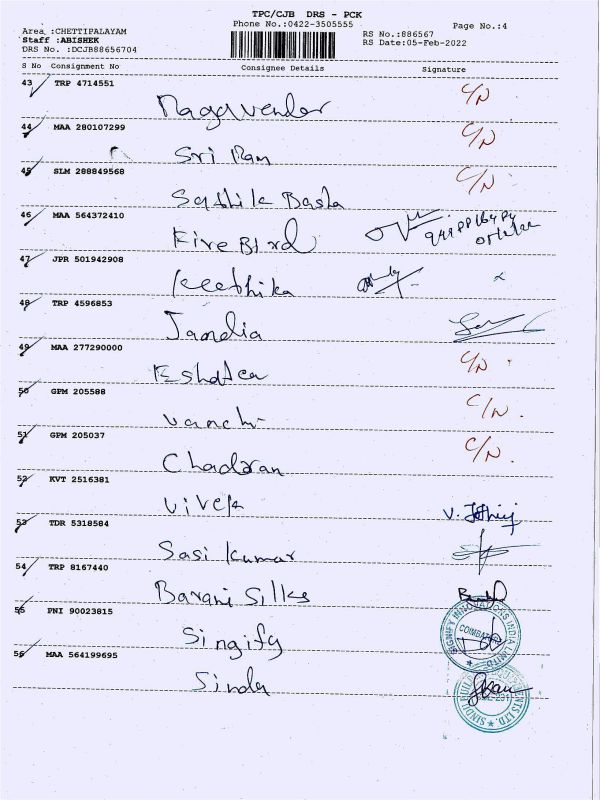 TPC/CJB DRS - PCK
Phone No.:0422-3505555
Page No.:4
Area :CHETTIPALAYAM
RS No.:886567
Staff :ABISHEK
RS Date:05-Feb-2022
DRS No. :DCJB88656704
S No Consignment No Consignee Details Signature
43 TRP 4714551
Nagavender C/N
44 MAA 280107299
Sri Ram C/N
45 SLM 288849568
Sathik Basha C/N
46 MAA 564372410
Fire Bird
47 JPR 501942908
Keethika
48 TRP 4596853
Jamelia
49 MAA 277290000
C/N
50 GPM 205588
Vanchi C/N
51 GPM 205037
Chadran C/N
52 KVT 2516381
Vivek V. Jothij
53 TDR 5318584
Sasi Kumar
54 TRP 8167440
Barani Silks
55 PNI 90023815
Singify
SIGNIFY INNOVATIONS INDIA LIMITED
COIMBATORE
56 MAA 564199695
Sindu